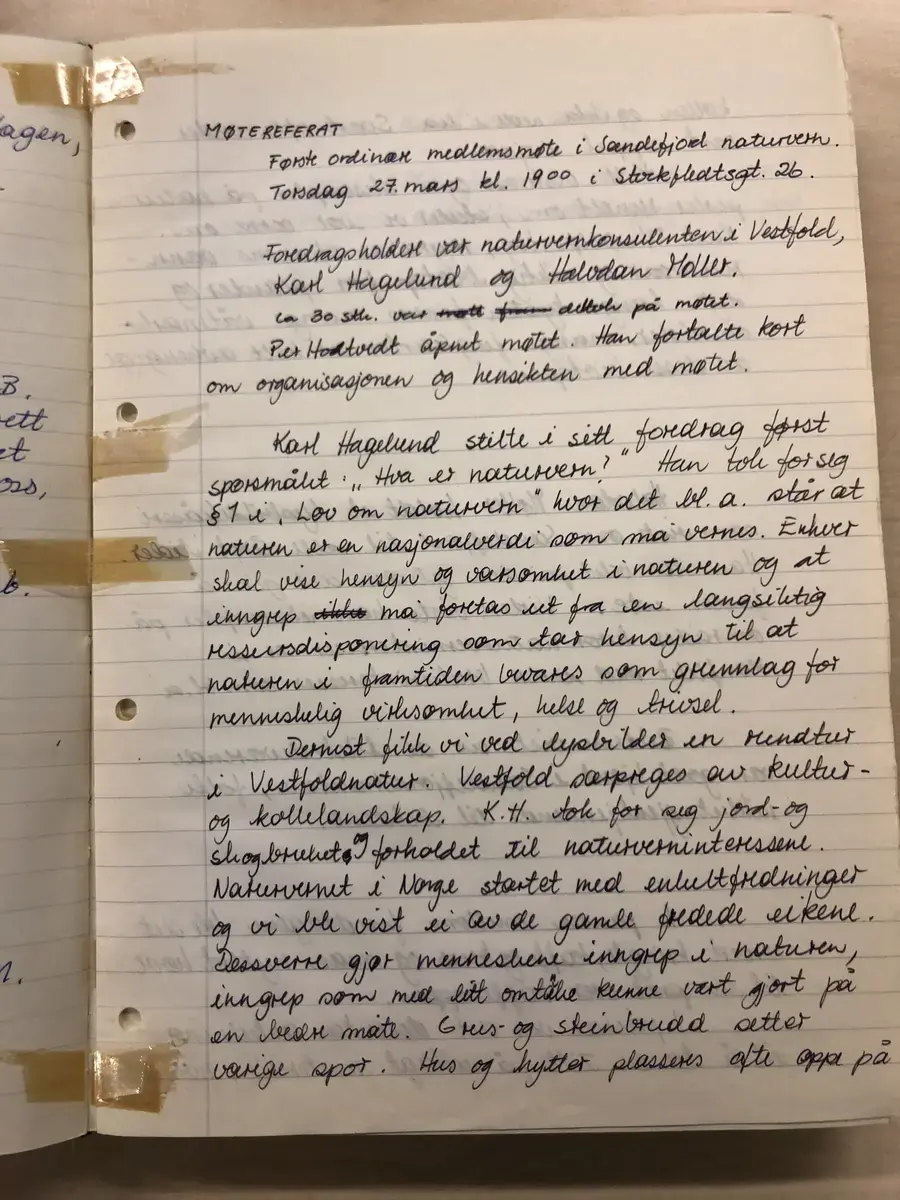 agen,
B.
ett
et
oss,
b.
MØTEREFERAT
Første ordinære medlemsmøte i Sandefjord naturvern.
Torsdag 27. mars kl. 1900 i Stockfledtsgt. 26.
Foredragsholdere var naturvernkonsulenten i Vestfold,
Karl Hagelund og Halvdan Møller.
ca 30 stk. var møtt fram deltok på møtet.
Per Hodtvedt åpnet møtet. Han fortalte kort
om organisasjonen og hensikten med møtet.
Karl Hagelund stilte i sitt foredrag først
spørsmålet: „Hva er naturvern?" Han tok for seg
§1 i „Lov om naturvern" hvor det bl.a. står at
naturen er en nasjonalverdi som må vernes. Enhver
skal vise hensyn og varsomhet i naturen og at
inngrep ikke må foretas ut fra en langsiktig
ressursdisponering som tar hensyn til at
naturen i framtiden bevares som grunnlag for
menneskelig virksomhet, helse og trivsel.
Dernest fikk vi ved lysbilder en rundtur
i Vestfoldnatur. Vestfold særpreges av kultur-
og kollelandskap. K.H. tok for seg jord- og
skogbruket og forholdet til naturverninteressene.
Naturvernet i Norge startet med enkeltfredninger
og vi ble vist ei av de gamle fredede eikene.
Dessverre gjør menneskene inngrep i naturen,
inngrep som med litt omtanke kunne vært gjort på
en bedre måte. Grus- og steinbrudd setter
varige spor. Hus og hytter plasseres ofte oppe på